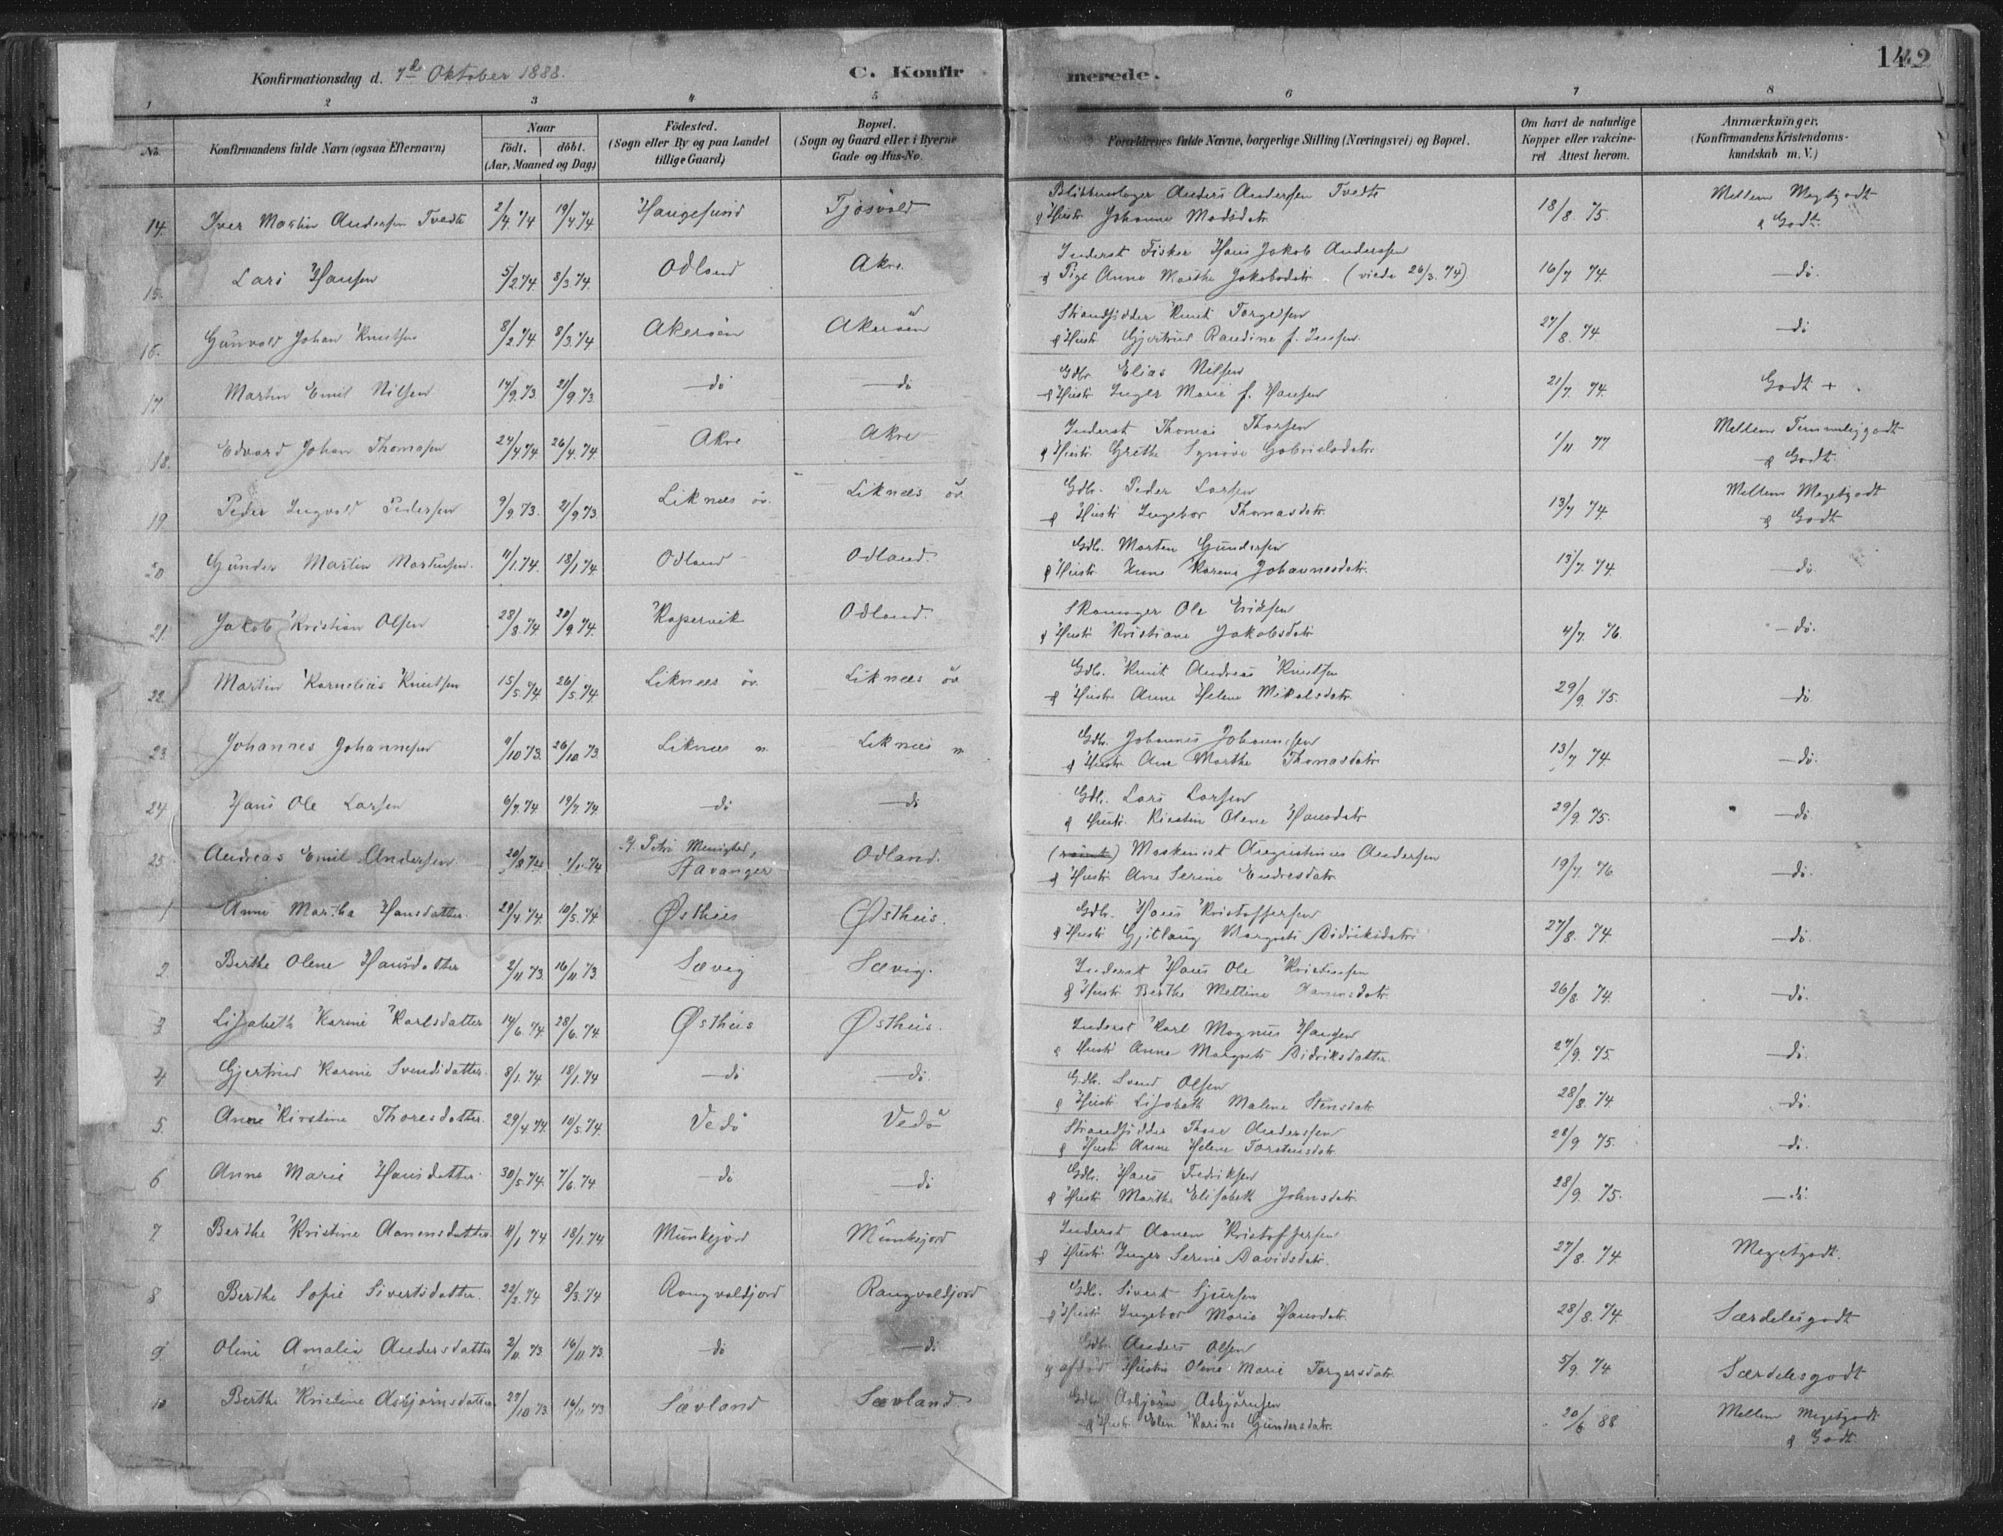 142
Konfirmationsdag d. 7de Oktober 1888.
C. Konfirmerede.
1 2 3 4 5 6 7 8
No. Konfirmandens fulde Navn (ogsaa Efternavn) Naar født. døbt. (Aar, Maaned og Dag) Födested. (Sogn eller By og paa Landet tillige Gaard) Bopæl. (Sogn og Gaard eller i Byerne Gade og Hus-No. Forældrenes fulde Navne, borgerlige Stilling (Næringsvei) og Bopæl. Om havt de naturlige Kopper eller vakcineret Attest herom. Anmærkninger. (Konfirmandens Kristendomskundskab m. V.)
14. Iver Martin Andersen Tvedt 2/4 74 19/4 74 Haugesund Tjøsvold Blikkenslager Anders Andersen Tvedt & Hustr Johanne Madsdatr 18/8. 75. Mellem Megetgodt & Godt
15. Lars Hansen 5/2 74 8/3. 74 Odland Akre Inderst Fisker Hans Jakob Anderssen & Pige Anne Marthe Jakobsdatr (viede 26/3. 74) 16/7 74. do.
16. Gunvald Johan Knutsen 8/2. 74 8/3. 74 Akerøen Akerøen Strandsidder Knut Torgersen & Hustr Gjertrud Raudine f. 27/8. 74 do
17. Martin Emil Nilsen 17/9. 73 21/9 73 do do Gdbr Elias Nilsen & Hustr Inger Marie f. Hansen 21/7. 74. Godt +
18. Edvard Johan Thomassen 24/4 74 26/4. 74 Akre Akre Inderst Thomas Thorsen & Hustr. Grethe Synøve Gabrielsdatr 1/11 77 Mellem Temmeliggodt & Godt
19 Peder Ingvald Pedersen 9/9. 73. 21/9 73. Liknes öv. Liknes öv Gdbr. Peder Larsen & Hustr Ingebor Thomasdatr 13/7 74. Mellem Megetgodt & Godt
20 Gunder Martin Martinsen 11/1. 74. 18/1 74 Odland Odland. Gdbr. Morten Gundersen & Hustr Anne Karene Johannesdatr. 13/7. 74. do.
21. Jakob Kristian Olsen 28/8. 74 20/9. 74. Kopervik Odland. Skomager Ole Eriksen & Hustr Kristiane Jakobsdatr 4/7. 76. do.
22 Martin Kornelius Knutsen 15/5. 74 26/5. 74 Liknes öv. Liknes öv. Gdbr. Knut Andreas Knutsen & Hustr Anne Helene Mikalsdatr 29/9. 75. do.
23 Johannes Johannesen 11/10 73. 26/10. 73. Liknes n. Liknes n Gdbr. Johannes Johannesen & Hustr Ane Marthe Thomasdatr 13/7 74. do.
24 Hans Ole Larsen 6/7. 74 19/7. 74. do do Gdbr. Lars Larsen & Hustr. Kirstin Olene Hansdatr 29/9. 75. do
25. Andreas Emil Andersen 20/8 1/1. 74 St. Petri Menighed, Stavanger Odland. Maskenist Augustinus Andersen & Hustr Ane Serine Endresdatr 19/7. 76 do.
1 Anne Martha Hansdatter 29/4 74. 10/5. 74. Østhus Østhus. Gdbr. Hans Kristoffersen & Hustr Gjitlaug Margrete Didriksdatr 27/8. 74. do.
2 Berthe Olene Hansdatter 2/11 73. 16/11 73. Sævig Sævig. Inderst Hans Ole Kristensen & Hustr Berthe Mettine Aanensdatr 26/8. 74. do.
3 Lisabeth Karine Karlsdatter 14/6. 74 28/6. 74 Østhus Østhus. Inderst Karl Magnus Hansen & Hustr Anne Margrete Didriksdatter 27/9. 75 do.
4 Gjertrud Karine Svendsdatter. 8/1. 74 18/1. 74 do do. Gdbr. Svend Olsen & Hustr Lisabeth Malene Stensdatr 28/8. 74. do.
5. Anne Kirstine Thoresdatter. 29/4 74. 10/5. 74. Vedö Vedö Strandsidder Thore Anderssen & Hustr Anne Helene Torstensdatr 28/9 75 do
6 Anne Marie Hansdatter 30/5. 74. 7/6. 74. do do Gdbr. Hans Fredriksen & Hustr Marthe Elisabeth Johnsdatr 28/9. 75. do
7. Berthe Kristine Aanensdatter. 11/1 74 18/1. 74 Munkejord Munkejord Inderst Aanen Kristoffersen & Hustr Inger Serine Davidsdatr. 27/8. 74 Megetgodt.
8 Berthe Sofie Sivertsdatter. 22/2. 74 8/3. 74 Rangvaldjord Rangvaldjord Gdbr. Sivert Sjursen & Hustr Ingebor Marie Hansdatr. 28/8. 74 Særdelesgodt
9 Oline Amalia Andersdatter 2/11 73 16/11 73 do do Gdbr Anders Olsen & afdød Hustru Oline Marie Torgersdatr 5/9. 74 Særdelesgodt
10 Berthe Kristine Asbjørnsdatter 27/10 73 16/11 73 Sævland Sævland. Gdbr Asbjørn Asbjørnsen & Hustr Elen Karine Gundersdatr. 20/6 88 Mellem Megetgodt & Godt.